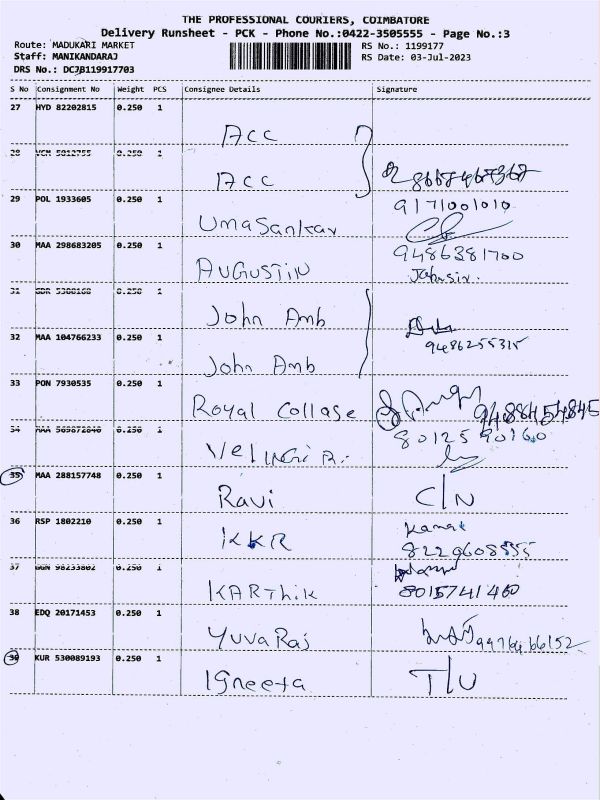 THE PROFESSIONAL COURIERS, COIMBATORE
Delivery Runsheet - PCK - Phone No.:0422-3505555 - Page No.:3
Route: MADUKARI MARKET RS No.: 1199177
Staff: MANIKANDARAJ RS Date: 03-Jul-2023
DRS No.: DCJB119917703
S No Consignment No Weight PCS Consignee Details Signature
27 HYD 82202815 0.250 1
Acc
28 VCM 5812755 0.250 1
Acc
29 POL 1933605 0.250 1 9171001010
Umasankar
30 MAA 298683205 0.250 1 9486381700
AUGUSTIN
31 0.250 1
John Amb
32 MAA 104766233 0.250 1 9486255315
John Amb
33 PON 7930535 0.250 1
Royal Collage 9488454845
34 0.250 1 8012590160
35 MAA 288157748 0.250 1
Ravi C/N
36 RSP 1802210 0.250 1
KKR 8229608555
37 0.250 1
KARThik 8015741460
38 EDQ 20171453 0.250 1
YuvaRaj
39 KUR 530089193 0.250 1
Igneeta T/U